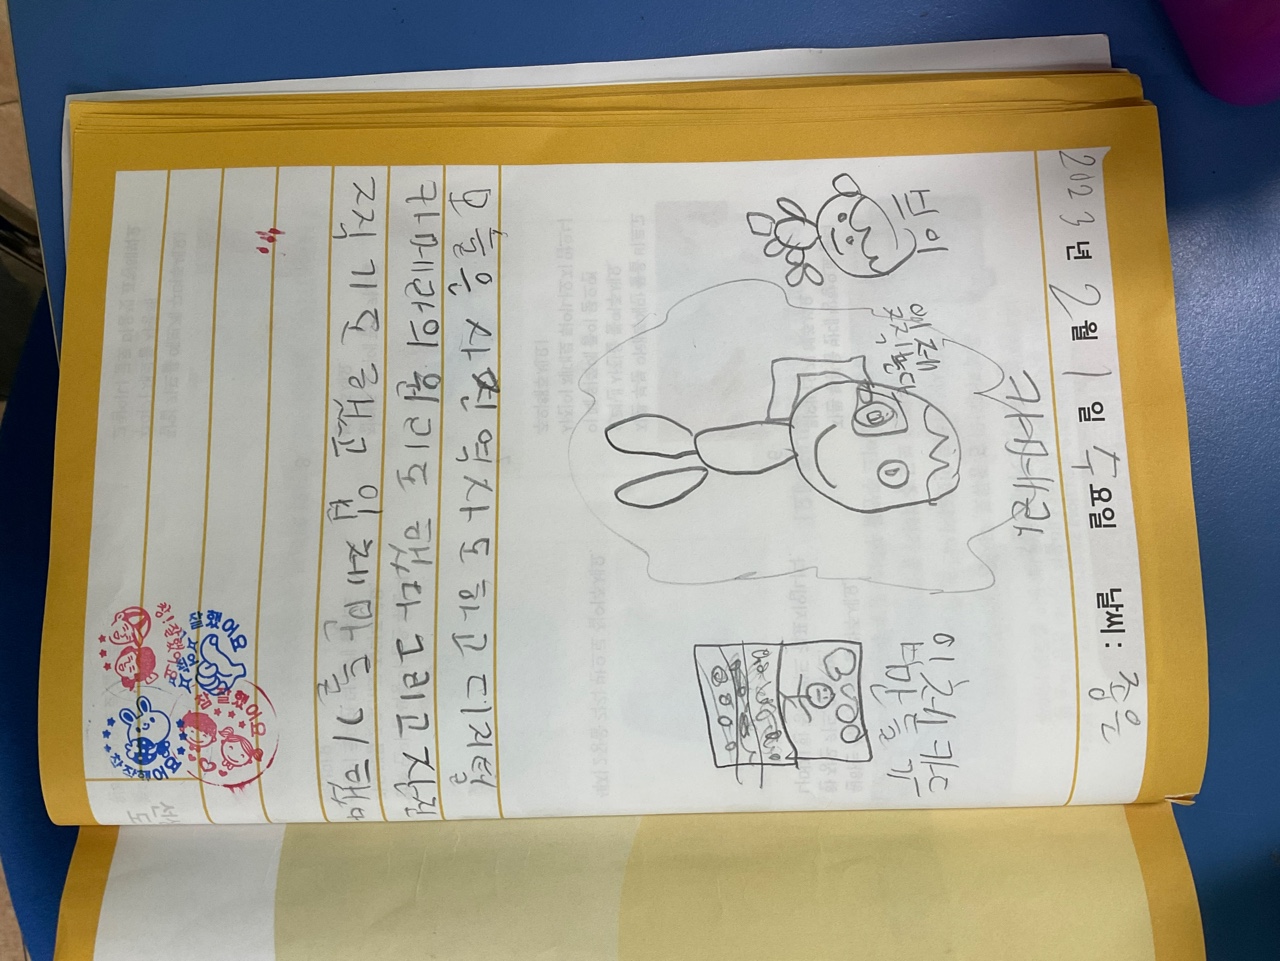 2023 년 2 월 1 일 수 요일 날씨 : 좋은
카메라
브이
입체 카드
만들
오늘은 사진 역사 도 하고 디지털
카메라의 원리도 했다 그리고 사진
찍기도 했고 입체 만들기 했
잘했어요
잘했어요
참!잘했어요